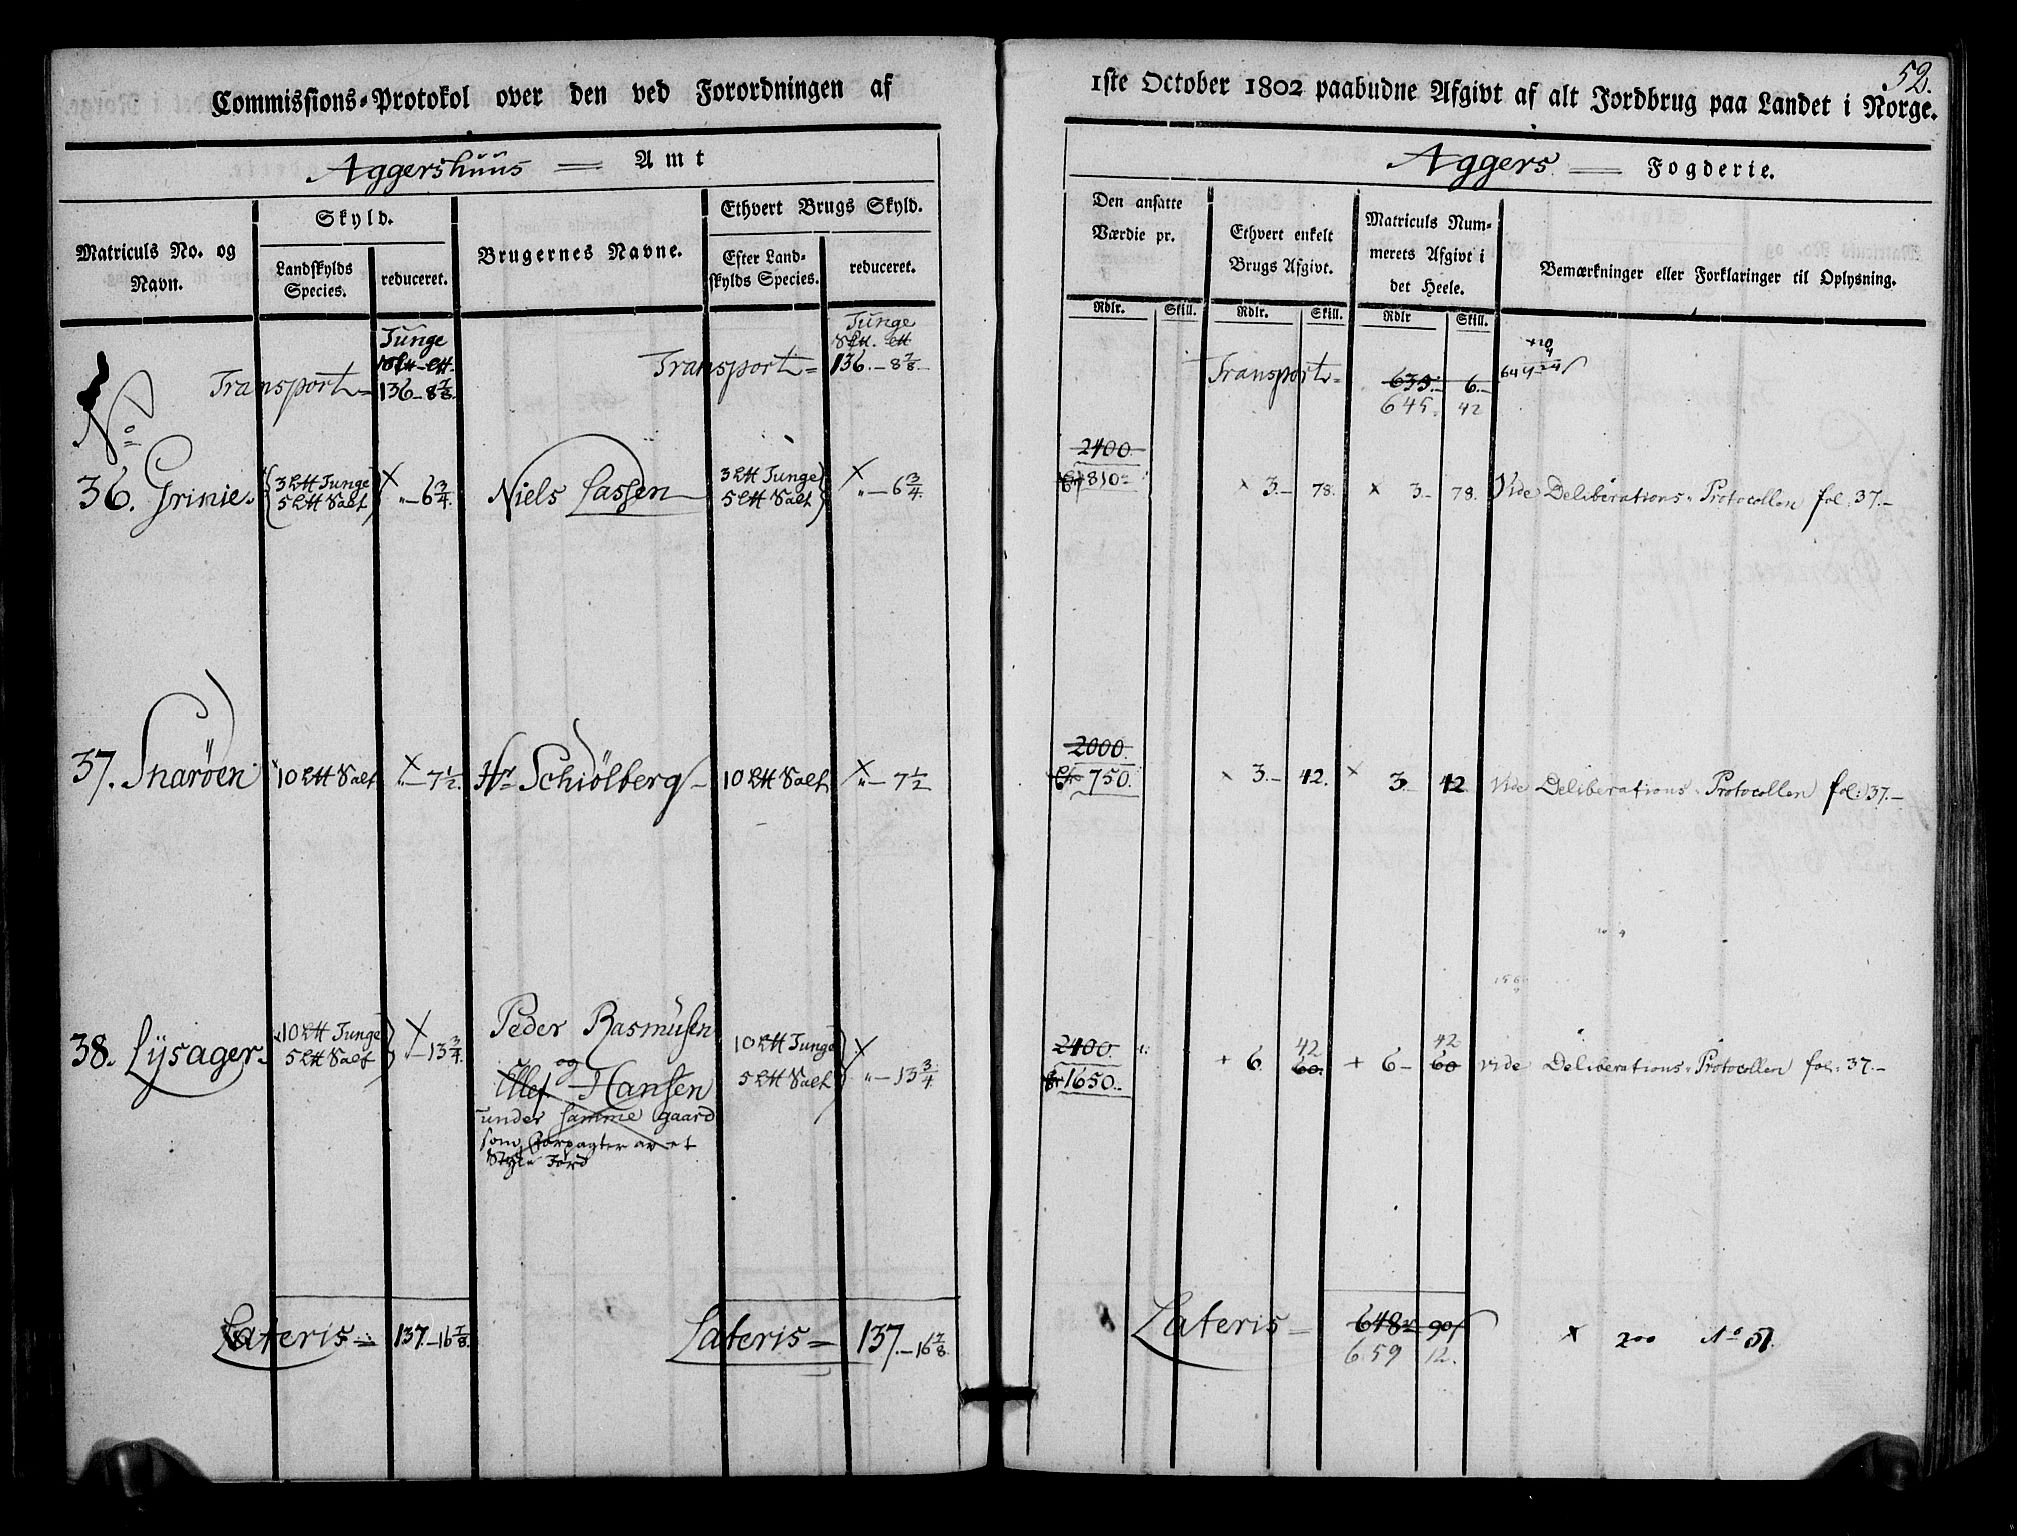 52.
Commissions-Protokol over den ved Forordningen af 1ste October 1802 paabudne Afgivt af alt Jordbrug paa Landet i Norge.
Aggershuus = Amt
Aggers = Fogderie.
Matriculs No. og Navn.
Skyld.
Landskylds Species.
reduceret.
Brugernes Navne.
Ethvert Brugs Skyld.
Efter Landskylds Species.
reduceret.
Den ansatte Værdie pr.
Rdlr. Skill.
Ethvert enkelt Brugs Afgivt.
Rdlr. Skill.
Matriculs Nummerets Afgivt i det Heele.
Rdlr Skill.
Bemærkninger eller Forklaringer til Oplysning.
Tunge
Transport = 136 - 8 7/8.
Tunge
Transport = 136. - 8 7/8 -
Transport = 635. - 6. -
645. 42
No
36. Grinie. 3 Ltt Tunge 5 Ltt Salt × „ - 6 3/4. Niels Lassen 3 Ltt Tunge 5 Ltt Salt × „ - 6 3/4
2400. 810 × 3. - 78. × 3 - 78. Vide Deliberations-Protocollen fol. 37. -
37. Snaröen 10 Ltt Salt × „ - 7 1/2. Hr Schiölberg - 10 Ltt Salt × „ - 7 1/2
2000. 750. × 3. - 42. × 3. 42 Vide Deliberations-Protocollen fol: 37. -
38. Lÿsager. 10 Ltt Tunge 5 Ltt Salt × „ - 13 3/4. Peder Rasmusen
og
Ellef Hansen
under samme gaard
som Forpagter av et
Stykke Jord
10 Ltt Tunge 5 Ltt Salt × „ - 13 3/4
2400. 1650. + 6 60. 42 + 6 - 60 42 vide Deliberations-Protocollen fol: 37. -
Lateris = 137. - 16 7/8.
Lateris = 137. - 16 7/8.
Lateris - 648 90
659 12.
× 200 No 51.